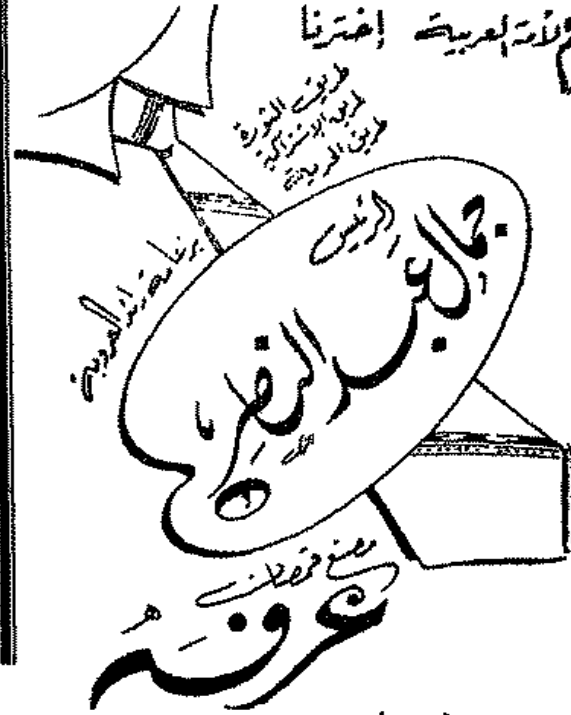 الأمة العربية إخترنا
طريق الثورة
طريق الإشتراكية
طريق الحرية
بزعامة رائد العروبة
الرئيس
جمال عبد الناصر
مصنع قمصان
عرفه